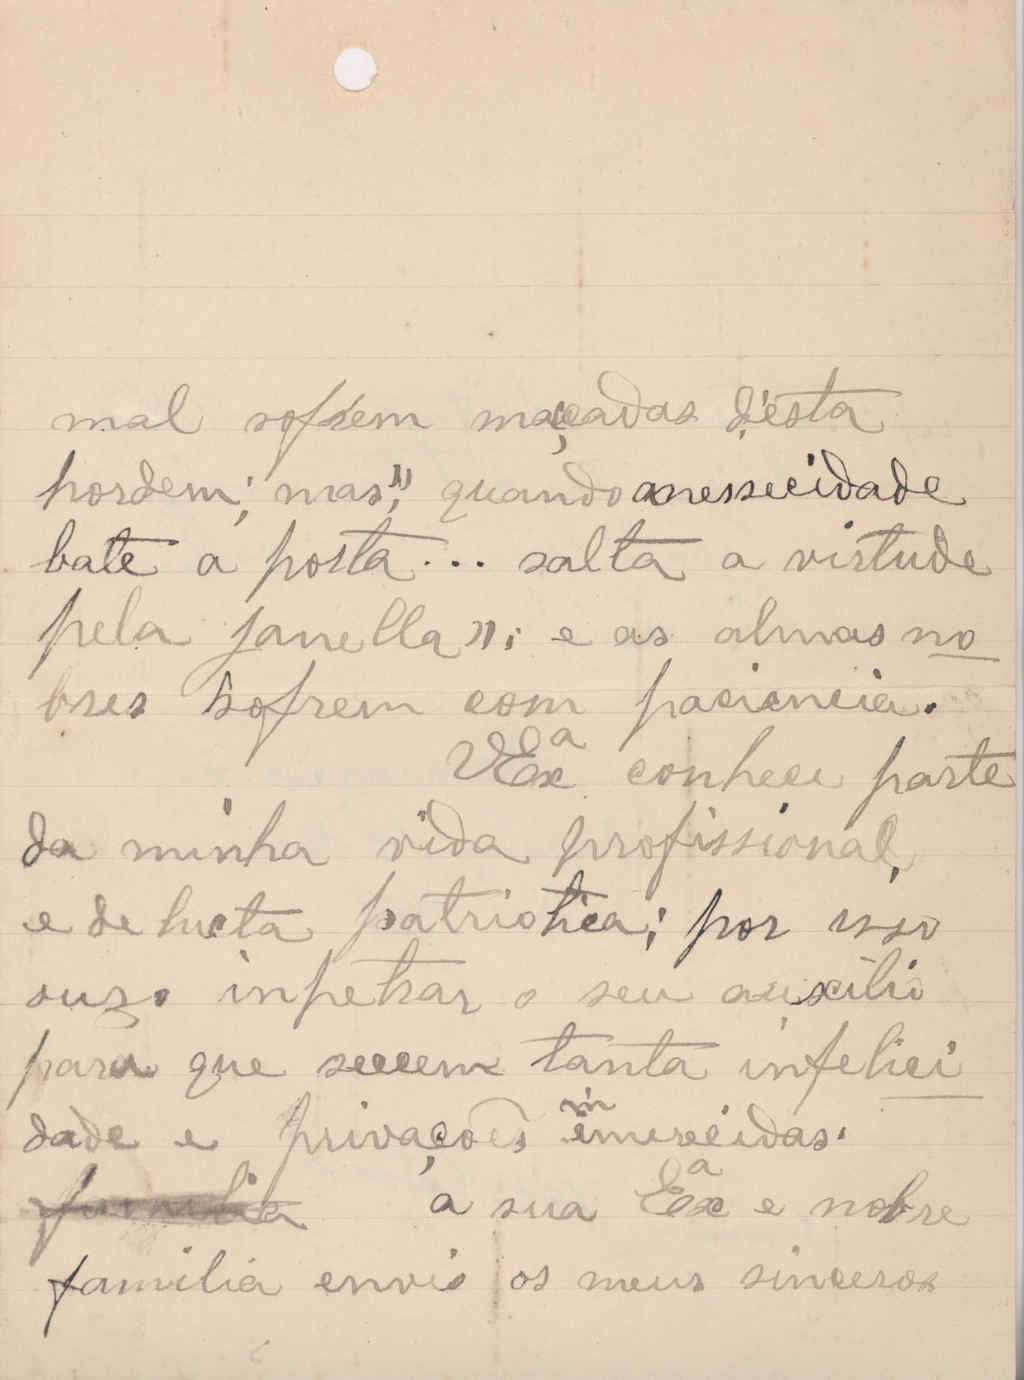 mal sofrem maçadas d'esta
hordem; mas," quando anessecidade
bate a porta... salta a virtude
pela janella"; e as almas no
bres sofrem com paciencia.
VExª conhece parte
da minha vida profissional,
e de lucta patriotica; por isso
ouzo inpetrar o seu auxílio
para que secem tanta infelici
dade e privações imerecidas.
familia a sua Exª e nobre
familia envio os meus sinceros